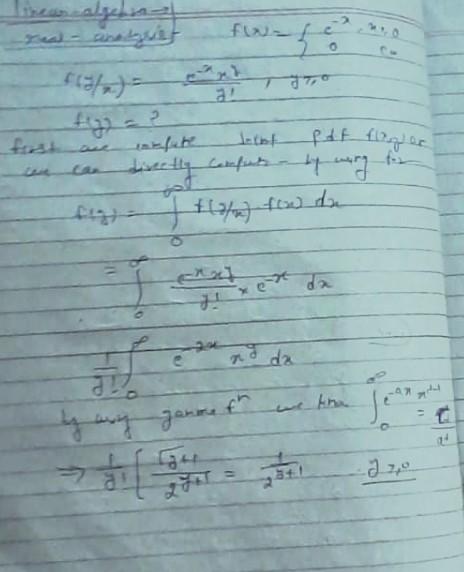 linear-algebra →
real-analysis f(x) = { e^-x, x>0
0
f(y/x) = e^-x x^y / y! , y≥0
f(y) = ?
first we compute joint pdf f(x,y) or
we can directly compute - by using
f(y) = ∫_0^∞ f(y/x) f(x) dx
= ∫_0^∞ e^-x x^y / y! × e^-x dx
1/y! ∫_0^∞ e^-2x x^y dx
by using gamma f^n we ∫_0^∞ e^-ax x^n-1 =
⇒ 1/y! [ √y+1 / 2^y+1 = 1 / 2^y+1 y≥0